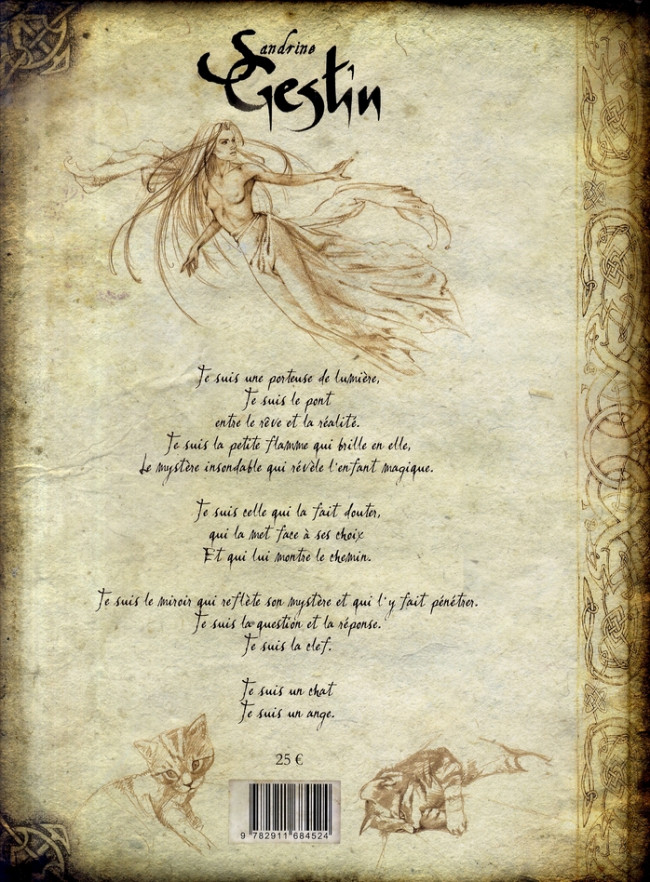 Sandrine
Gestin
Je suis une porteuse de lumière,
Je suis le pont
entre le rêve et la réalité.
Je suis la petite flamme qui brille en elle,
Le mystère insondable qui révèle l'enfant magique.
Je suis celle qui la fait douter,
qui la met face à ses choix
Et qui lui montre le chemin.
Je suis le miroir qui reflète son mystère et qui l'y fait pénétrer.
Je suis la question et la réponse.
Je suis la clef.
Je suis un chat
Je suis un ange.
25 €
9 782911 684524